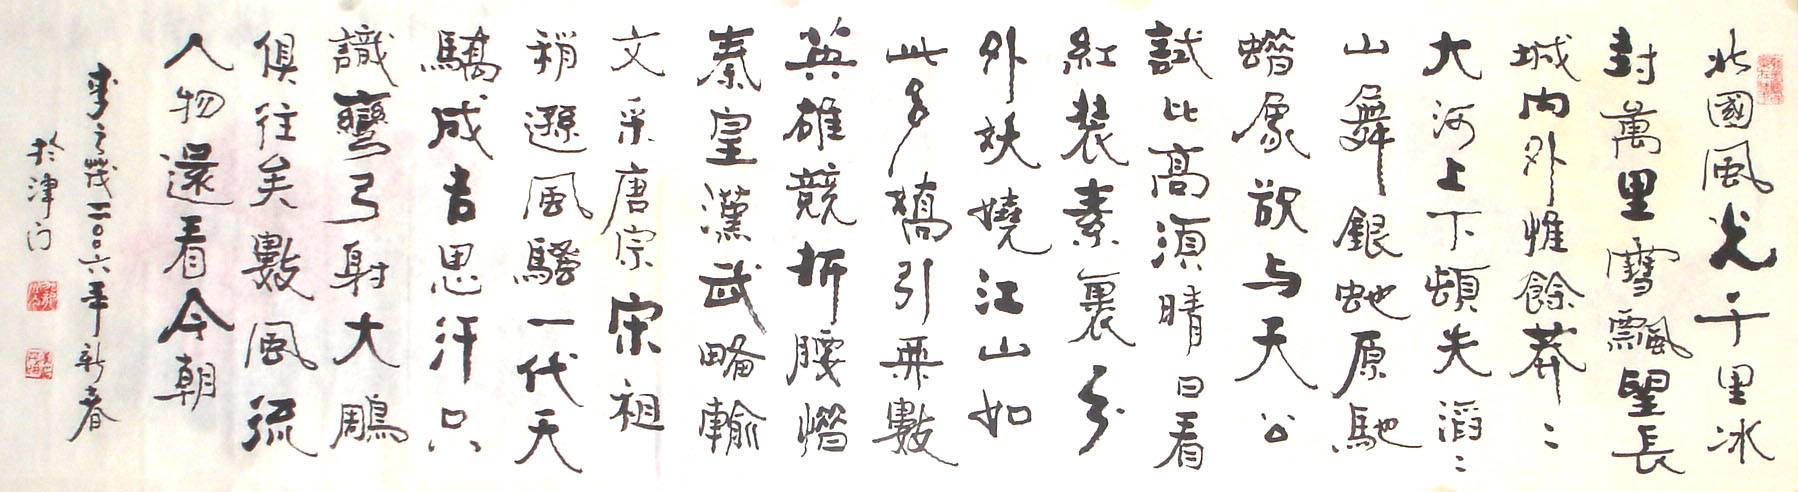 北國風光千里冰
封萬里雪飄望長
城内外惟餘莽〻
大河上下頓失滔〻
山舞銀蛇原馳
蜡象欲与天公
試比高須晴日看
紅裝素裹分
外妖嬈江山如
此多嬌引無數
英雄競折腰惜
秦皇漢武略輸
文采唐宗宋祖
稍遜風騷一代天
驕成吉思汗只
識彎弓射大鵰
俱往矣數風流
人物還看今朝
二〇〇六年新春
於津门